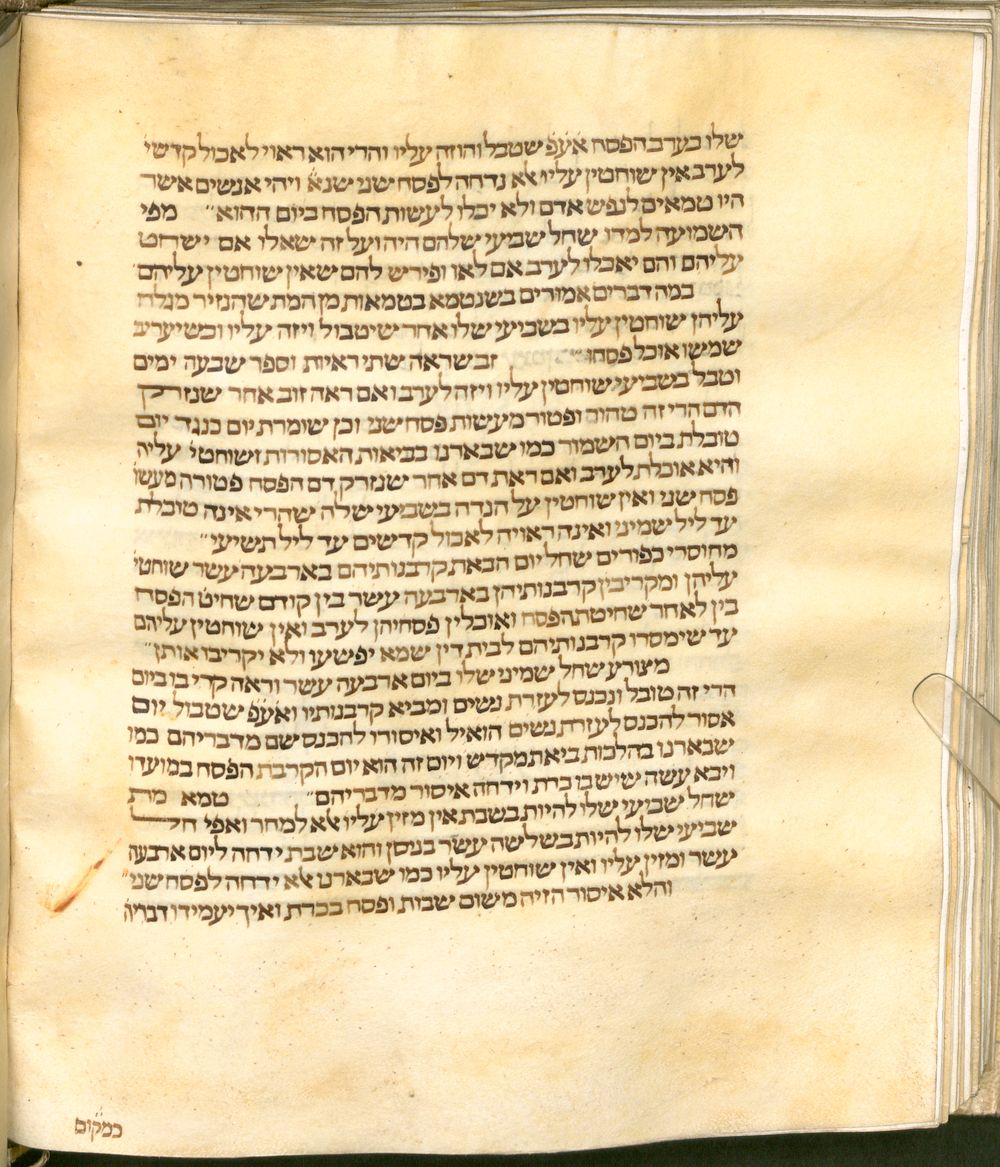 שלו בערב הפסח אע׳פ׳ שטבל והוזה עליו והרי הוא ראוי לאכול קדשי׳
לערב אין שוחטין עליו אלא נדחה לפסח שני שנא׳ ויהי אנשים אשר
היו טמאים לנפש אדם ולא יכלו לעשות הפסח ביום ההוא״ מפי
השמועה למדו שחל שביעי שלהם היה ועל זה שאלו אם ישחט
עליהם והם יאכלו לערב אם לאו ופירש להם שאין שוחטין עליהם
במה דברים אמורים בשנטמא בטמאות מן המת שהנזיר מגלח
עליהן שוחטין עליו בשביעי שלו אחר שיטבול ויזה עליו וכשיעריב
שמשו אוכל פסחו״ זב שראה שתי ראיות וספר שבעה ימים
וטבל בשביעי שוחטין עליו ויזה לערב ואם ראה זוב אחר שנזרק
הדם הרי זה טהור ופטור מעשות פסח שני וכן שומרת יום כנגד יום
טובלת ביום השמור כמו שבארנו בביאות האסורות ושוחטי׳ עליה
והיא אוכלת לערב ואם ראת דם אחר שנזרק דם הפסח פטורה מעשו׳
פסח שני ואין שוחטין על הנדה בשביעי שלה שהרי אינה טובלת
עד ליל שמיני ואינה ראויה לאכול קדשים עד ליל תשיעי״
מחוסרי כפורים שחל יום הבאת קרבנותיהם בארבעה עשר שוחטי׳
עליהן ומקריבין קרבנותיהן בארבעה עשר בין קודם שחיט׳ הפסח
בין לאחר שחיטת הפסח ואוכלין פסחיהן לערב ואין שוחטין עליהם
עד שימסרו קרבנותיהם לבית דין שמא יפשעו ולא יקריבו אותן״
מצורע שחל שמיני שלו ביום ארבעה עשר וראה קרי בו ביום
הרי זה טובל ונכנס לעזרת נשים ומביא קרבנותיו ואע׳פ׳ שטבול יום
אסור להכנס לעזרת נשים הואיל ואיסורו להכנס שם מדבריהם כמו
שבארנו בהלכות ביאת מקדש ויום זה הוא יום הקרבת הפסח במועדו
ויבא עשה שיש בו כרת וידחה איסור מדבריהם״ טמא מת
שחל שביעי שלו להיות בשבת אין מזין עליו אלא למחר ואפי׳ חל
שביעי שלו להיות בשלשה עשר בניסן והוא שבת ידחה ליום ארבעה
עשר ומזין עליו ואין שוחטין עליו כמו שבארנו אלא ידחה לפסח שני״
והלא איסור הזיה משום שבות ופסח בכרת ואיך יעמידו דבריה׳
במקום